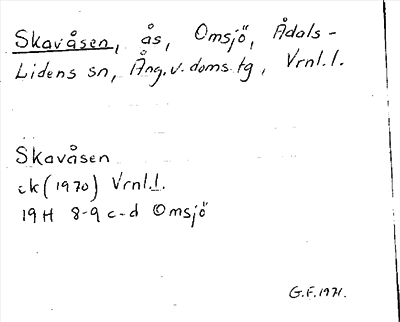 Skavåsen, ås, Omsjö, Ådals-
Lidens sn, Ång.v.doms.tg, Vrnl.l.
Skavåsen
ek (1970) Vrnl.l.
19H 8-9 c-d Omsjö
G.F.1971.